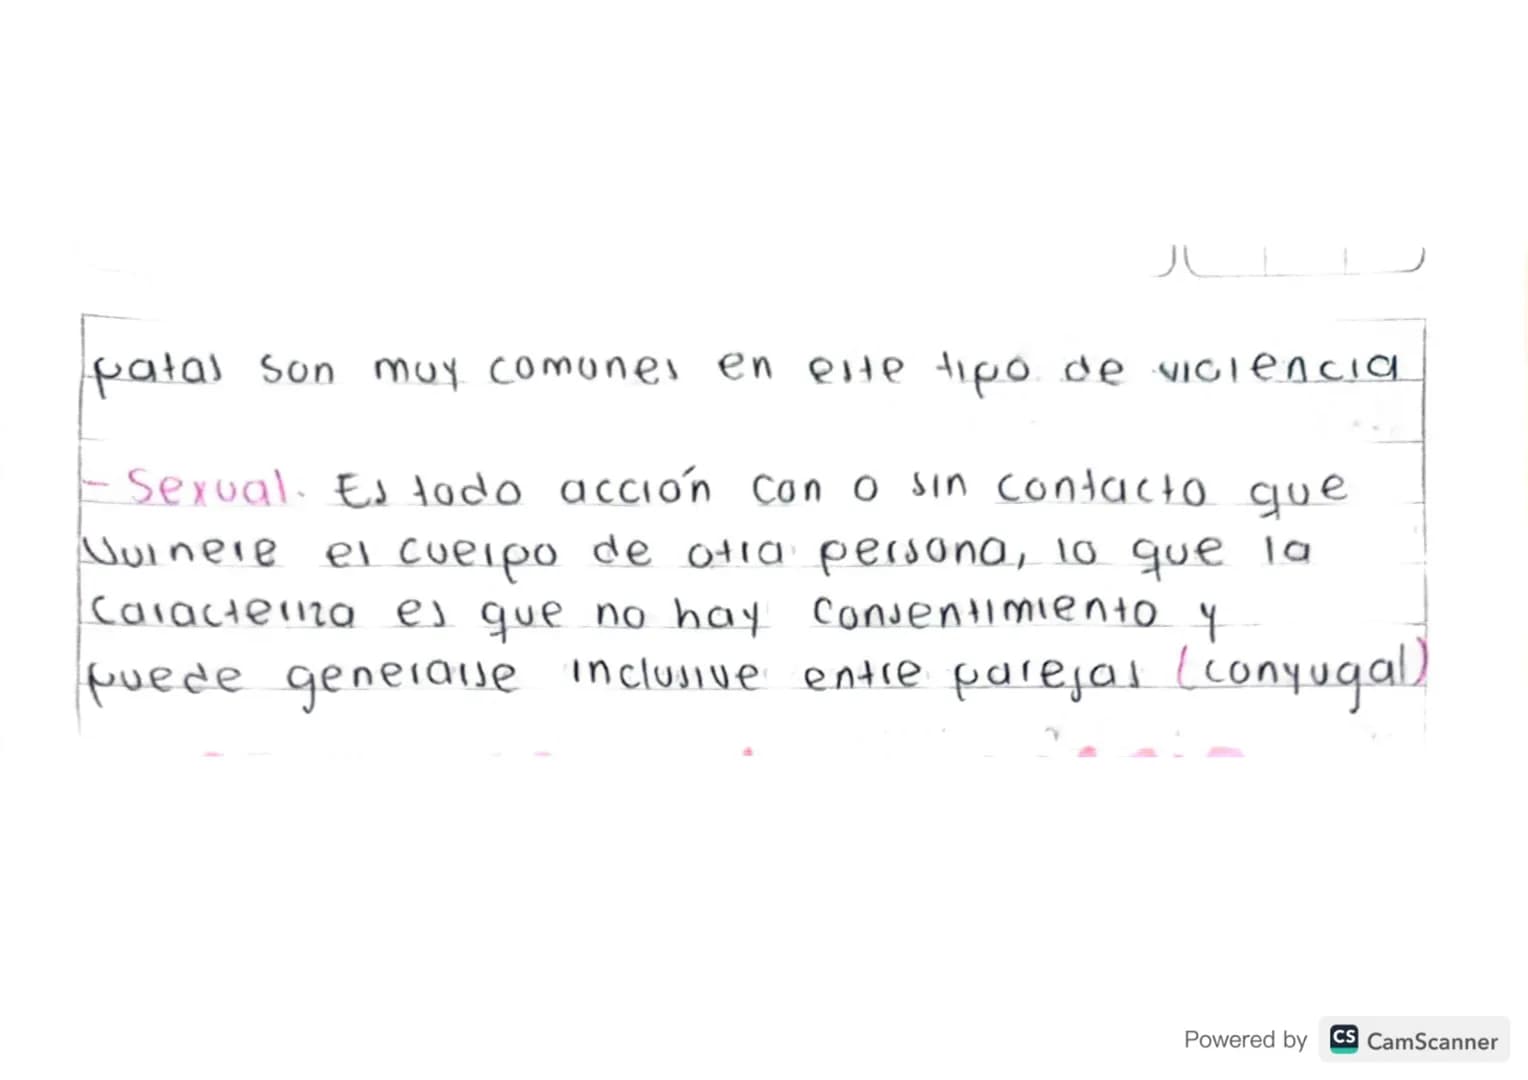 patas son muy comunes en este tipo de violencia
- Sexual. Es todo acción con o sin contacto que
Vulnere el cuerpo de otra persona, lo que la
Caracteriza es que no hay Consentimiento y
puede generarse inclusive entre parejas (conyugal)
Powered by CS CamScanner